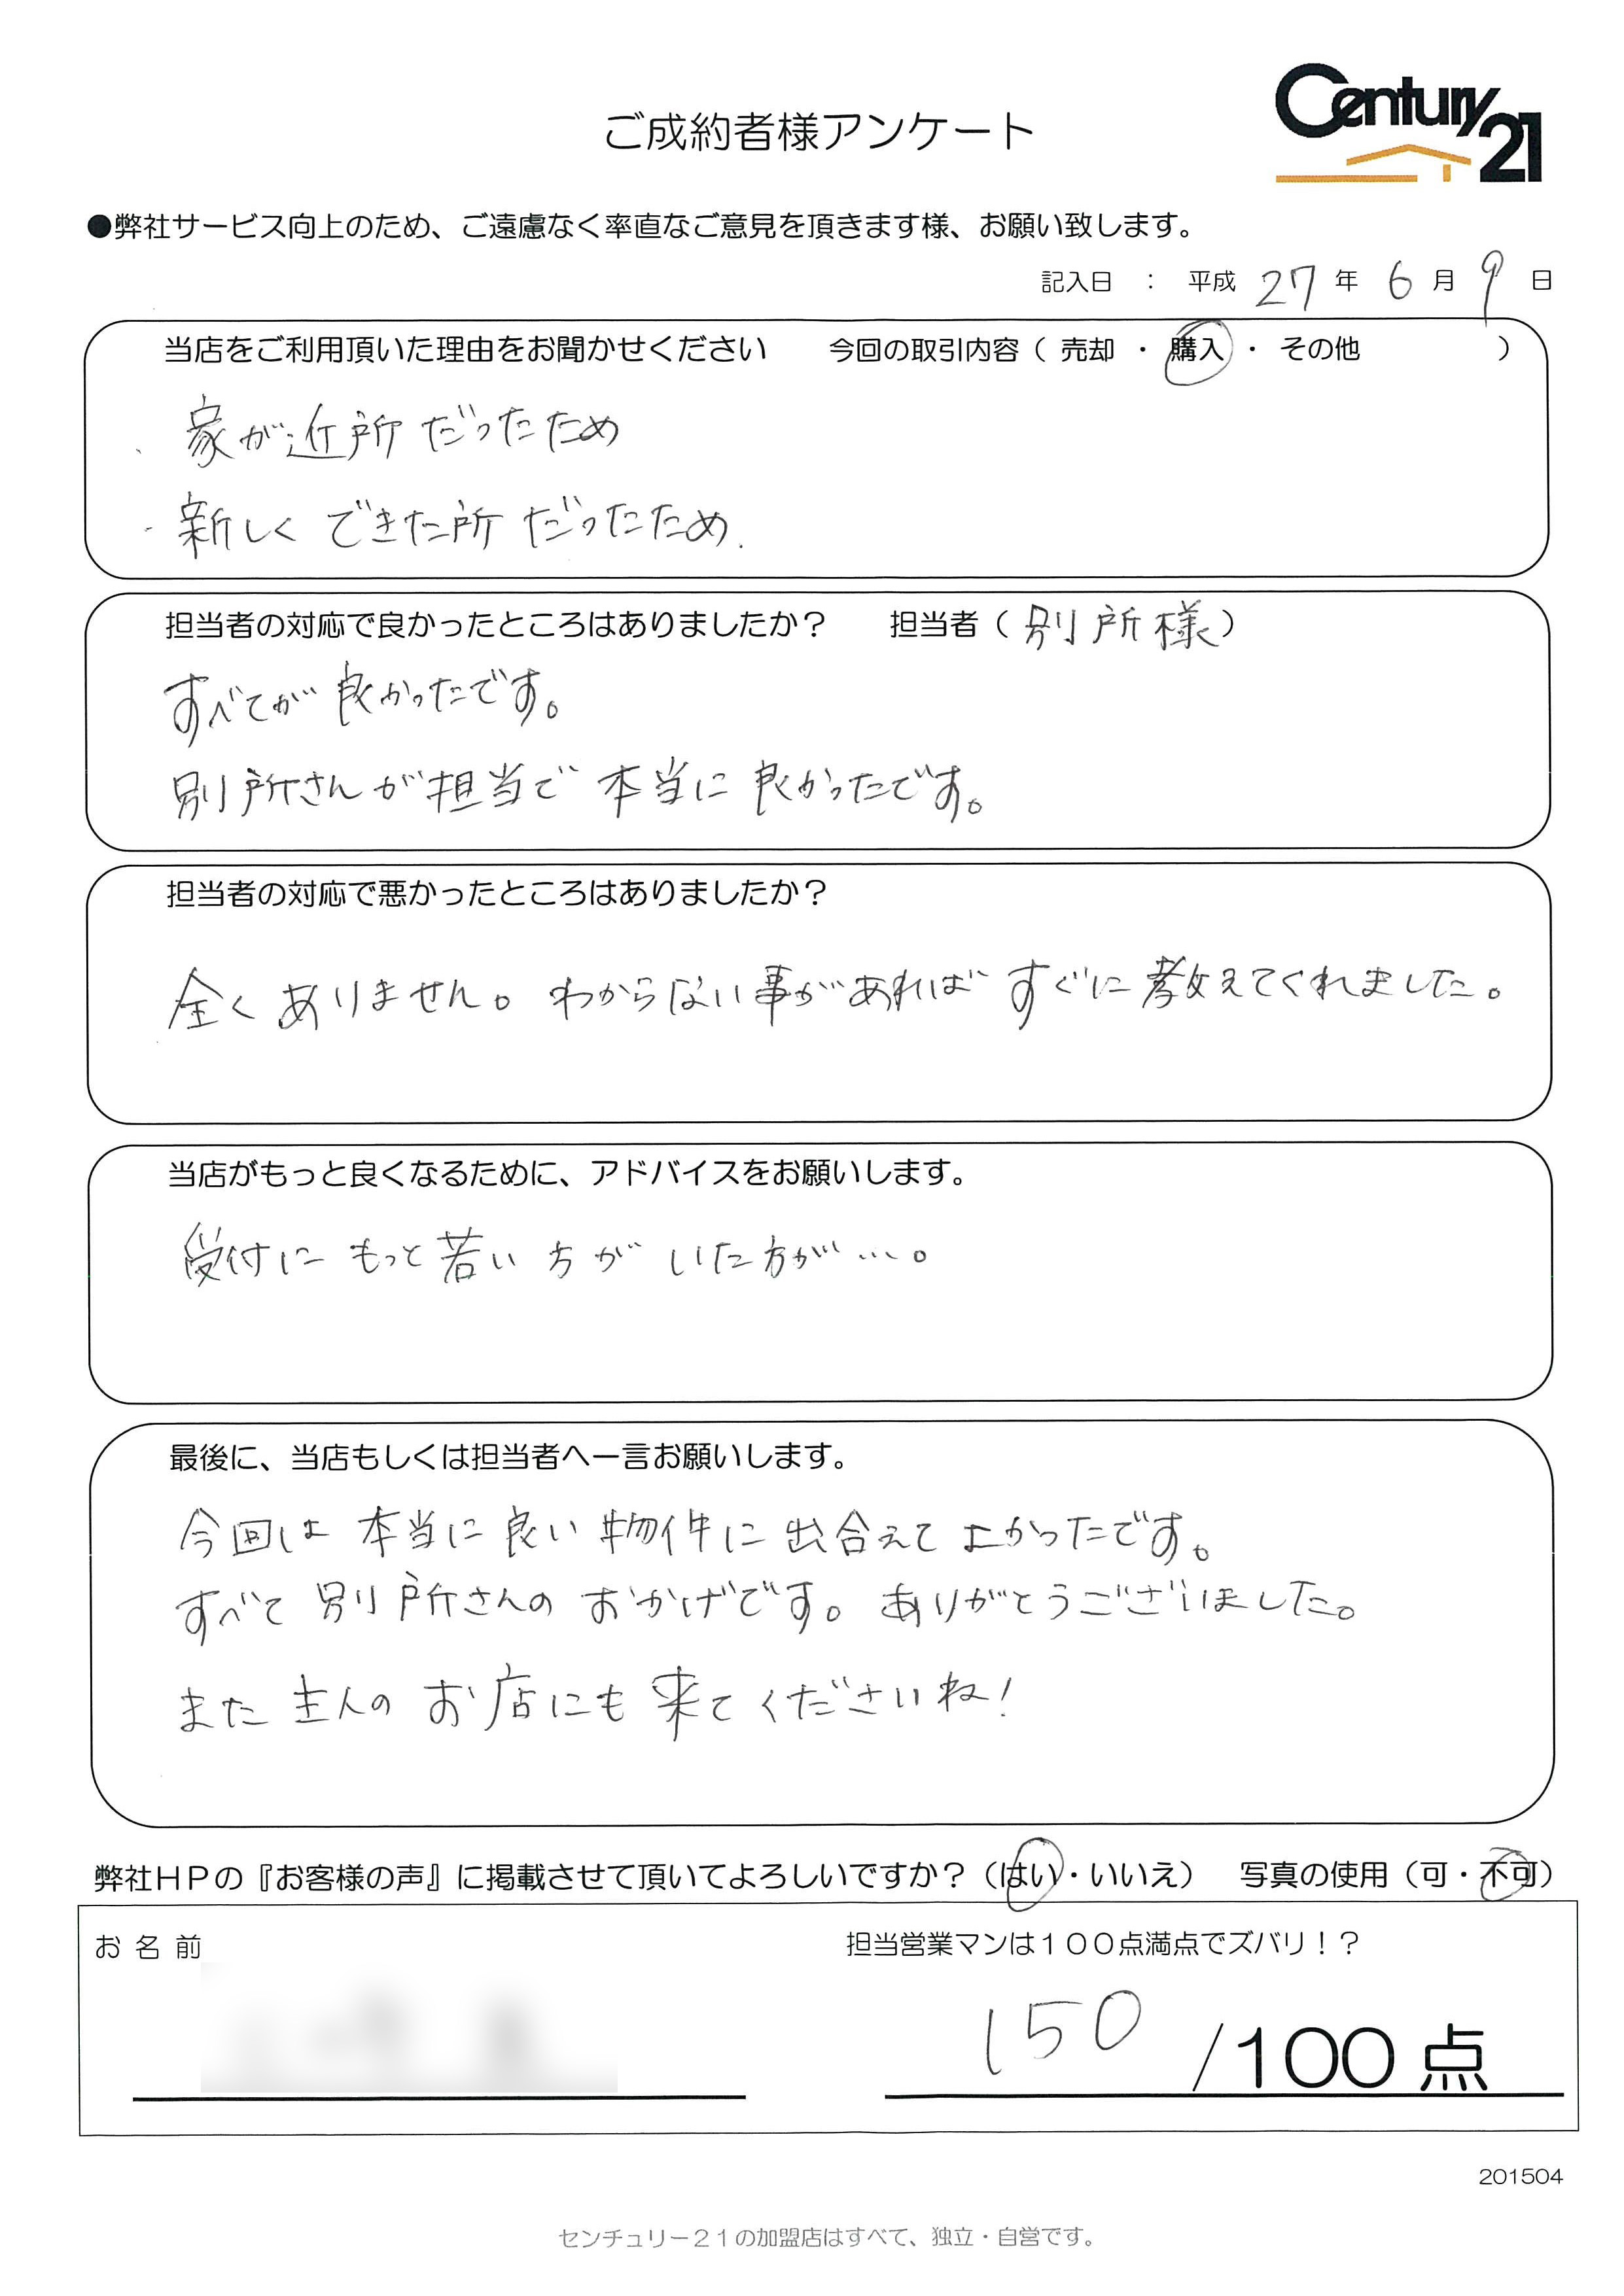 Century 21
ご成約者様アンケート
●弊社サービス向上のため、ご遠慮なく率直なご意見を頂きます様、お願い致します。
記入日 : 平成 27 年 6 月 9 日
当店をご利用頂いた理由をお聞かせください 今回の取引内容（ 売却 ・ 購入 ・ その他 ）
・家が近所だったため
・新しくできた所だったため.
担当者の対応で良かったところはありましたか？ 担当者（ 別所様 ）
すべてが良かったです。
別所さんが担当で本当に良かったです。
担当者の対応で悪かったところはありましたか？
全くありません。わからない事があればすぐに教えてくれました。
当店がもっと良くなるために、アドバイスをお願いします。
受付にもっと若い方がいた方が…。
最後に、当店もしくは担当者へ一言お願いします。
今回は本当に良い物件に出合えてよかったです。
すべて別所さんのおかげです。ありがとうございました。
また主人のお店にも来てくださいね！
弊社ＨＰの『お客様の声』に掲載させて頂いてよろしいですか？（はい・いいえ） 写真の使用（可・不可）
お 名 前 担当営業マンは１００点満点でズバリ！？
150 /100 点
201504
センチュリー２１の加盟店はすべて、独立・自営です。